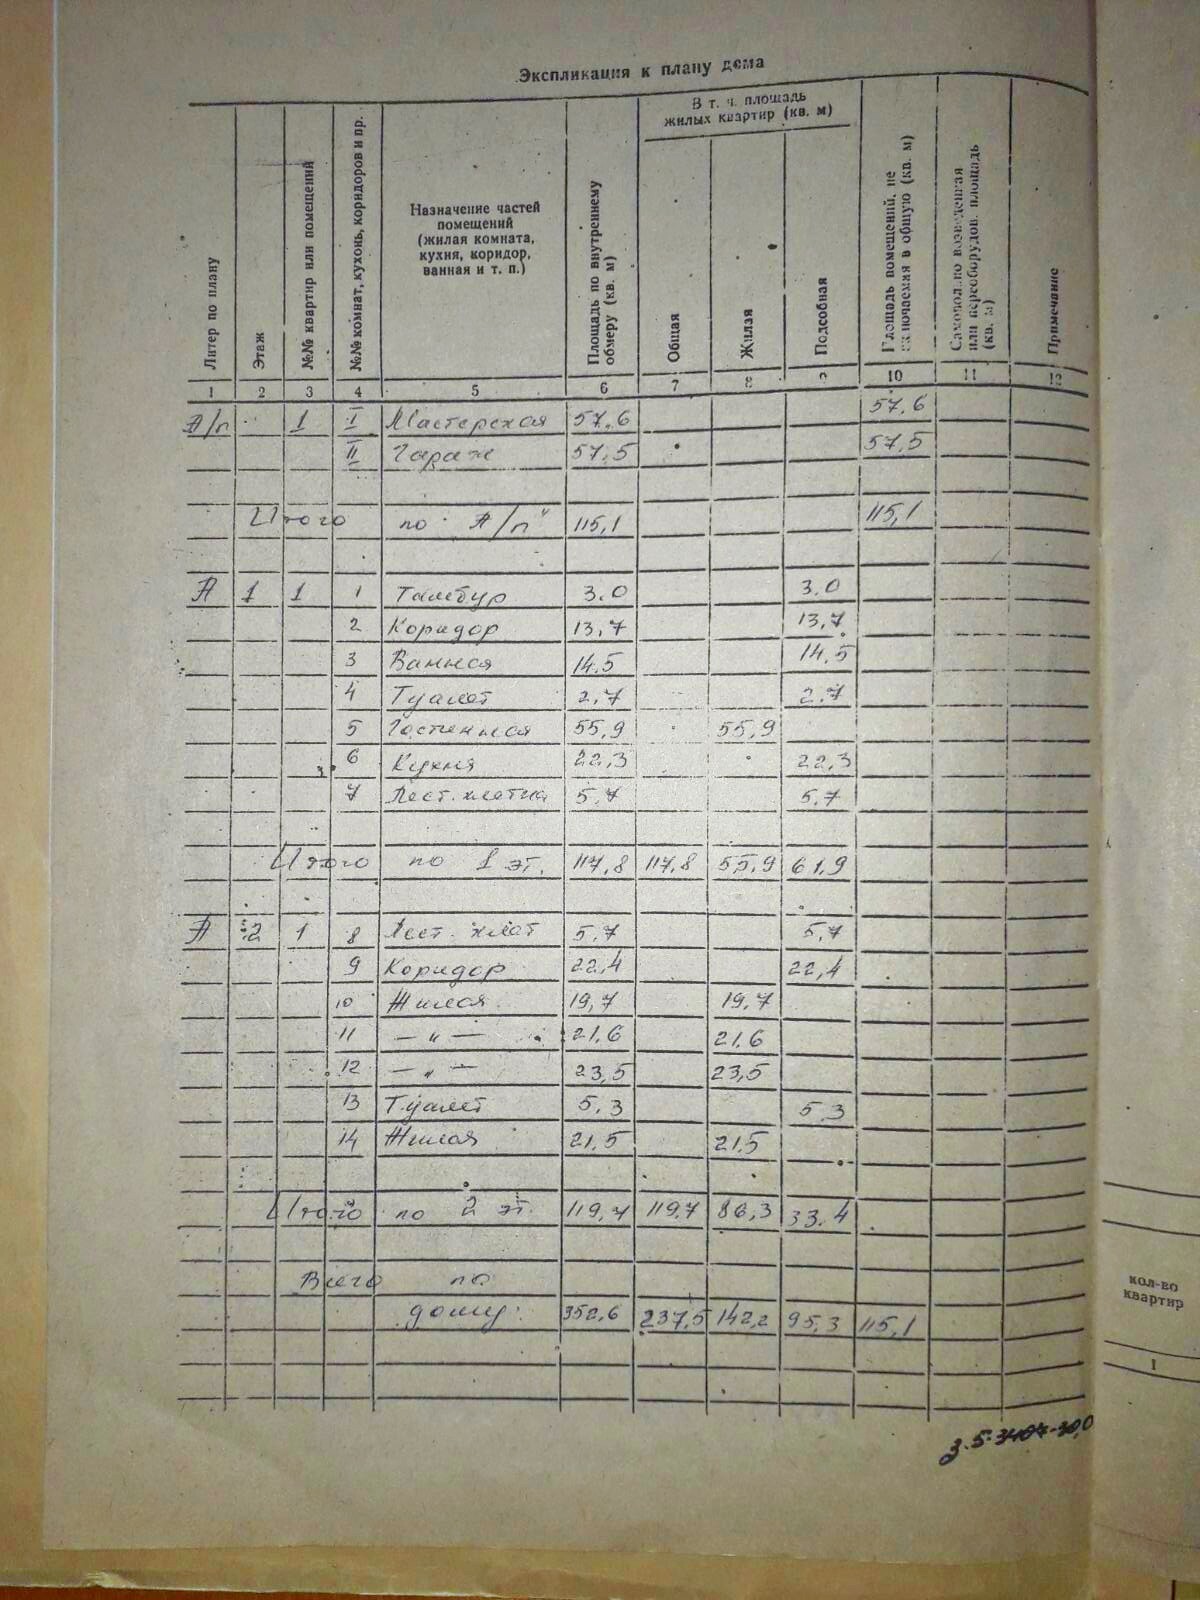 Экспликация к плану дома
Литер по плану
Этаж
№№ квартир или помещений
№№ комнат, кухонь, коридоров и пр.
Назначение частей помещений (жилая комната, кухня, коридор, ванная и т. п.)
Площадь по внутреннему обмеру (кв. м)
В т. ч. площадь жилых квартир (кв. м)
Общая
Жилая
Подсобная
Площадь помещений, не включаемая в общую (кв. м)
Самовольно возведенная или переоборудов. площадь (кв. м)
Примечание
1 2 3 4 5 6 7 8 9 10 11 12
А/п 1 I Мастерская 57,6 57,6
II Гараж 57,5 57,5
Итого по А/п" 115,1 115,1
А 1 1 1 Тамбур 3.0 3.0
2 Коридор 13,7 13,7
3 Ванная 14.5 14.5
4 Туалет 2,7 2,7
5 Гостинная 55,9 55,9
6 Кухня 22,3 22,3
7 Лест. клетка 5,7 5,7
Итого по 1 эт. 117,8 117,8 55,9 61,9
А 2 1 8 Лест. клет 5,7 5,7
9 Коридор 22,4 22,4
10 Жилая 19,7 19,7
11 — „ — 21,6 21,6
12 — „ — 23,5 23,5
13 Туалет 5,3 5,3
14 Жилая 21,5 21,5
Итого по 2 эт. 119,7 119,7 86,3 33,4
Всего по
дому: 352,6 237,5 142,2 95,3 115,1
кол-во
квартир
1